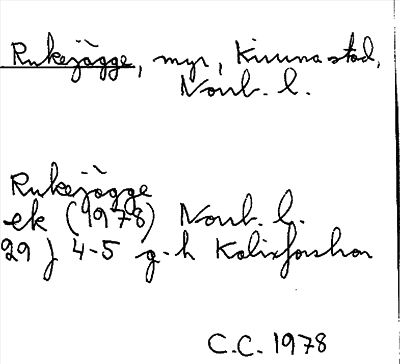 Rukejägge, myr, Kiruna stad,
Norrb. l.
Rukejägge
ek (1978) Norrb. l.
29 J 4-5 g-h Kalixforsbron
C.C. 1978